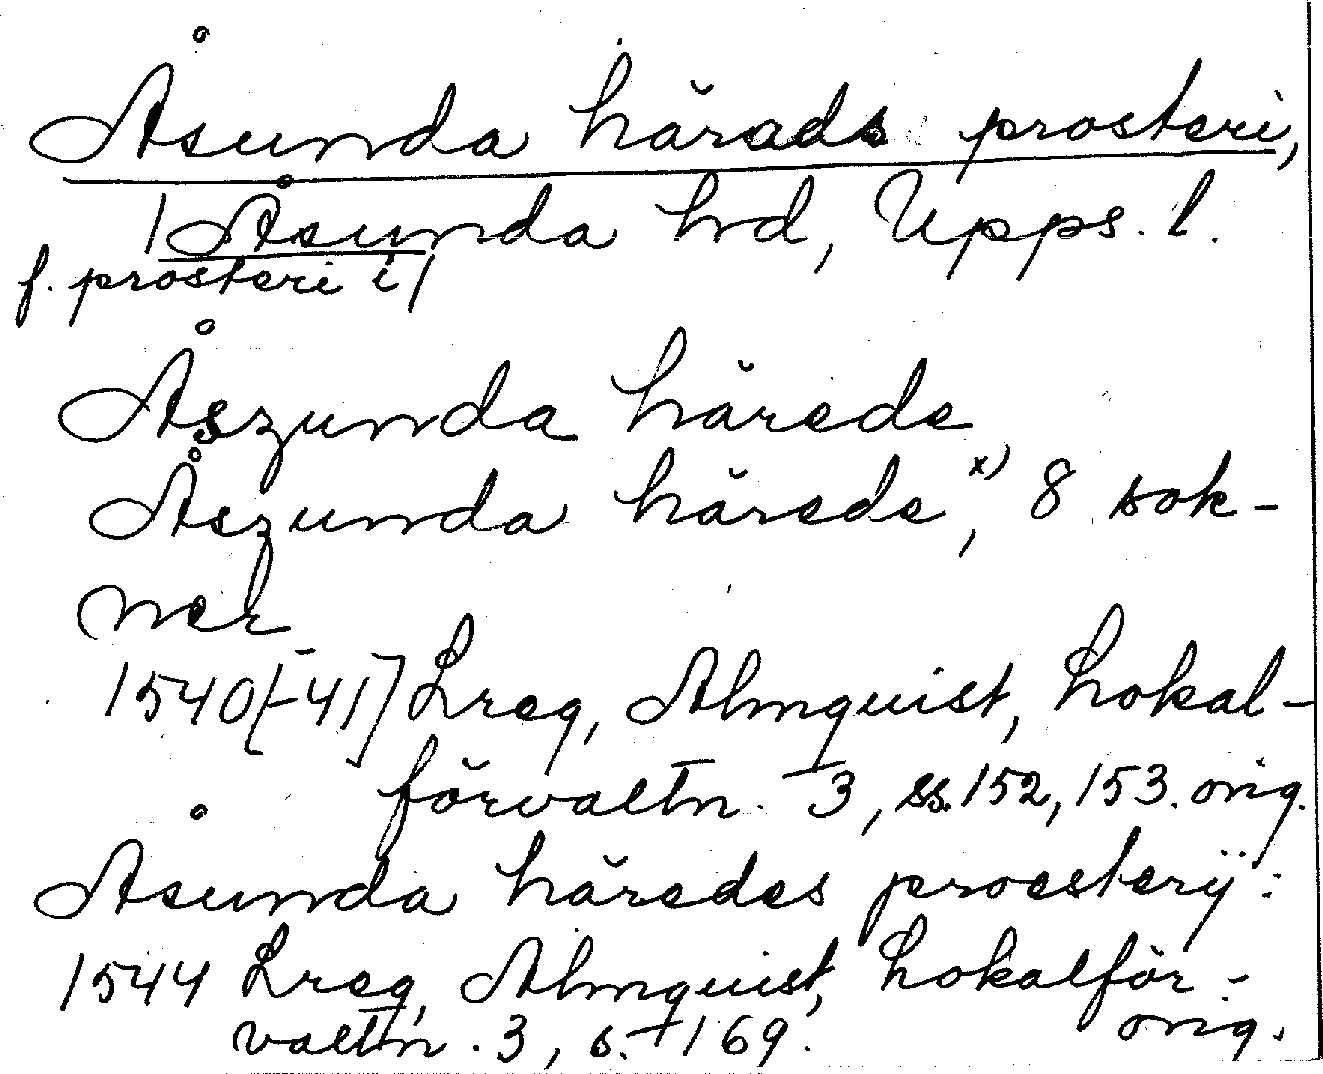 Åsunda härads prosteri,
/Åsunda hrd, Upps. l.
f. prosteri i/
Åszunda härede
Åszunda härede x), 8 sok-
ner
1540[-41] Lreg, Almquist, Lokal-
förvaltn. 3, ss. 152, 153. orig.
Åsunda häredes proesterÿ:
1544 Lreg, Almquist, Lokalför-
valtn. 3, s. 169. orig.